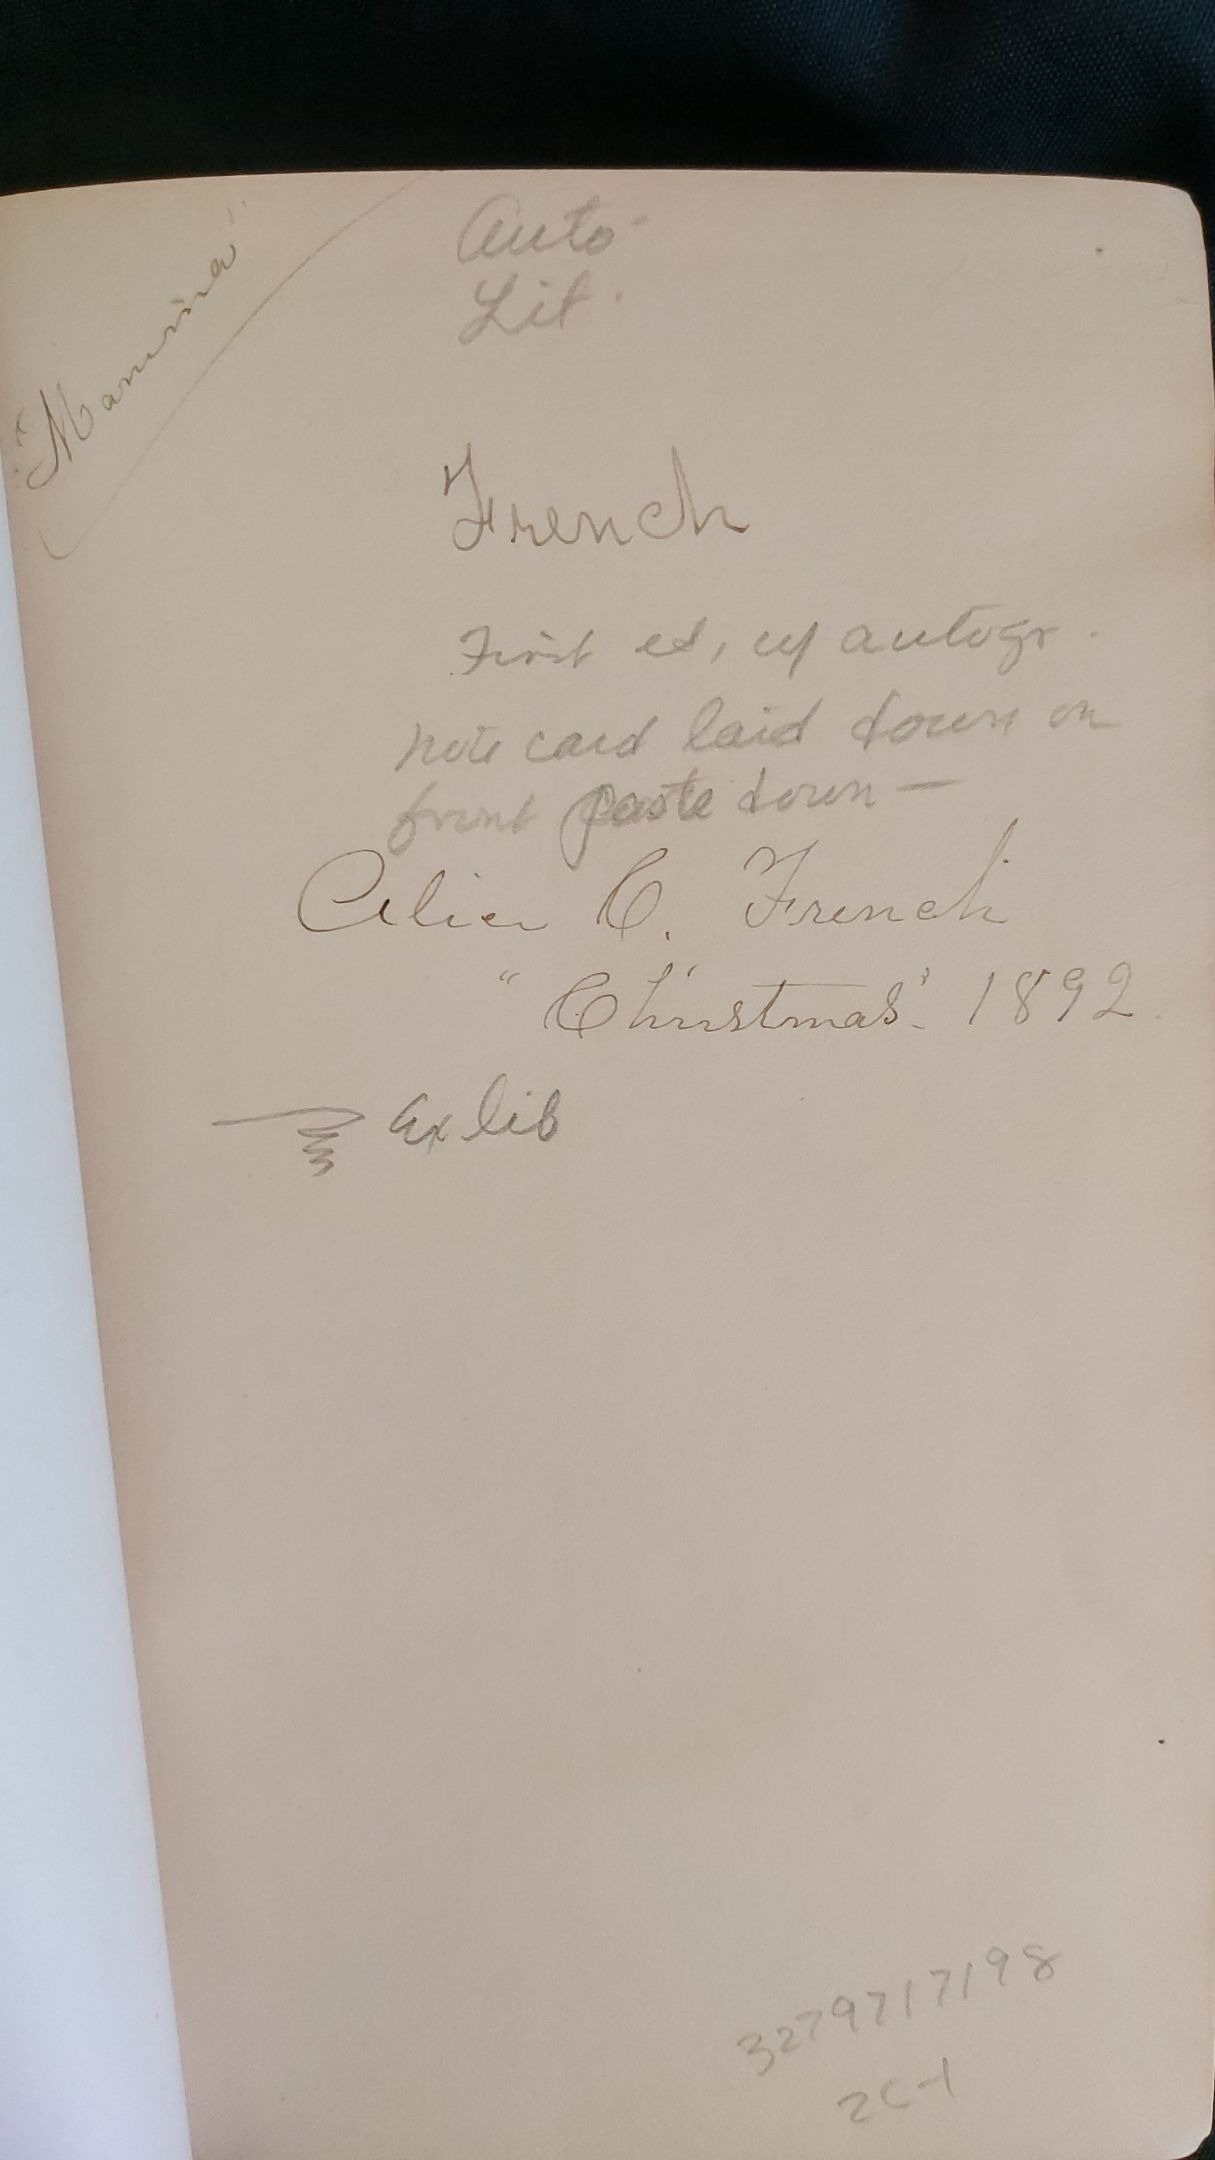 "Mamma"
Auto-
Lit.
French
First ed, w/ autogr.
note card laid down on
front paste down —
Alice C. French
"Christmas". 1892.
Ex lib
3279717198
2C-1